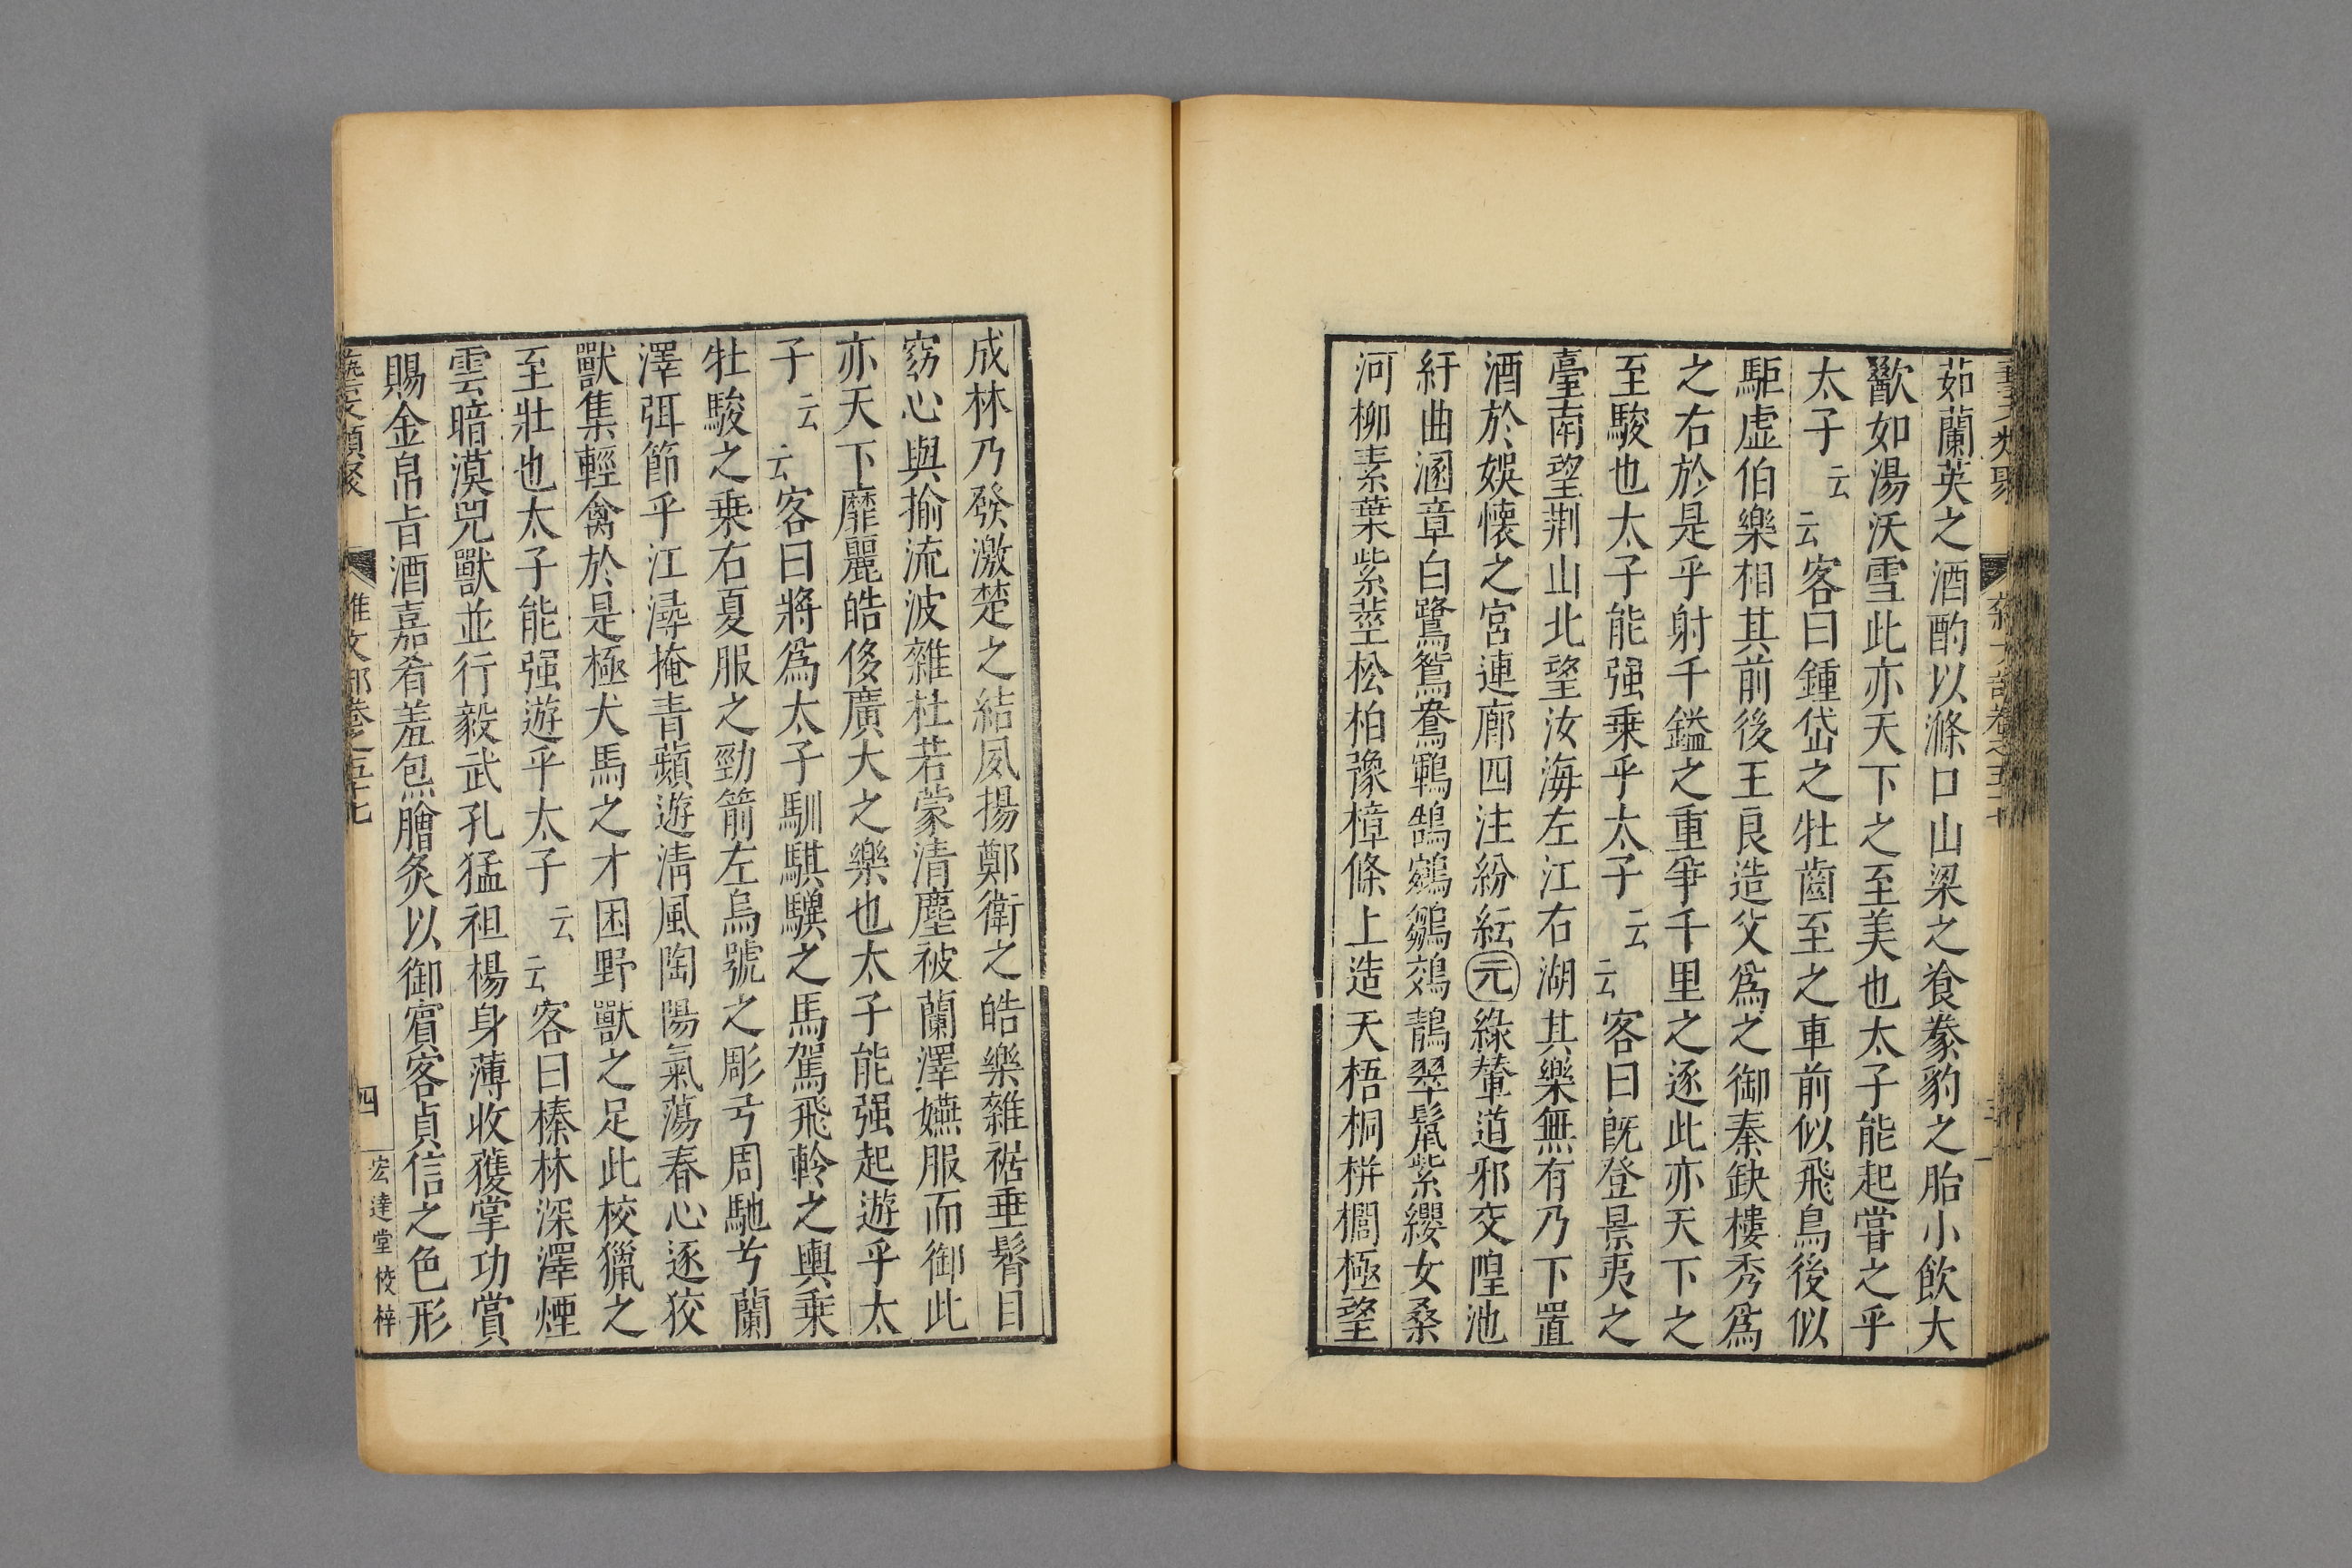 茹蘭英之酒酌以滌口山梁之飡豢豹之胎小飲大
歠如湯沃雪此亦天下之至美也太子能起甞之乎
太子云云客曰鍾岱之牡齒至之車前似飛鳥後似
駏虛伯樂相其前後王良造父爲之御秦缺樓秀爲
之右於是乎射千鎰之重爭千里之逐此亦天下之
至駿也太子能强乗乎太子云云客曰旣登景夷之
臺南望荆山北望汝海左江右湖其樂無有乃下置
酒於娛懷之宮連廊四注紛紜元綠輦道邪交隍池
紆曲溷章白鷺鴛鴦鶤鵠鵷鶵鵁鶄翠鬛紫纓女桑
河柳素葉紫莖松柏豫樟條上造天梧桐栟櫚極望
成林乃發激楚之結風揚鄭衛之皓樂雜裾垂髾目
窈心與揄流波雜杜若蒙清塵被蘭澤嬿服而御此
亦天下靡麗皓侈廣大之樂也太子能强起遊乎太
子云云客曰將爲太子馴騏驥之馬駕飛軨之輿乗
牡駿之乗右夏服之勁箭左烏號之彫弓周馳兮蘭
澤弭節乎江潯掩青蘋遊淸風陶陽氣蕩春心逐狡
獸集輕禽於是極犬馬之才困野獸之足此校獵之
至壯也太子能强遊乎太子云云客曰榛林深澤煙
雲暗漠兕獸並行毅武孔猛袒楊身薄收獲掌功賞
賜金帛旨酒嘉肴羞炰膾炙以御賓客貞信之色形
藝文類聚 雜文部卷之五十七 四 宏達堂校梓